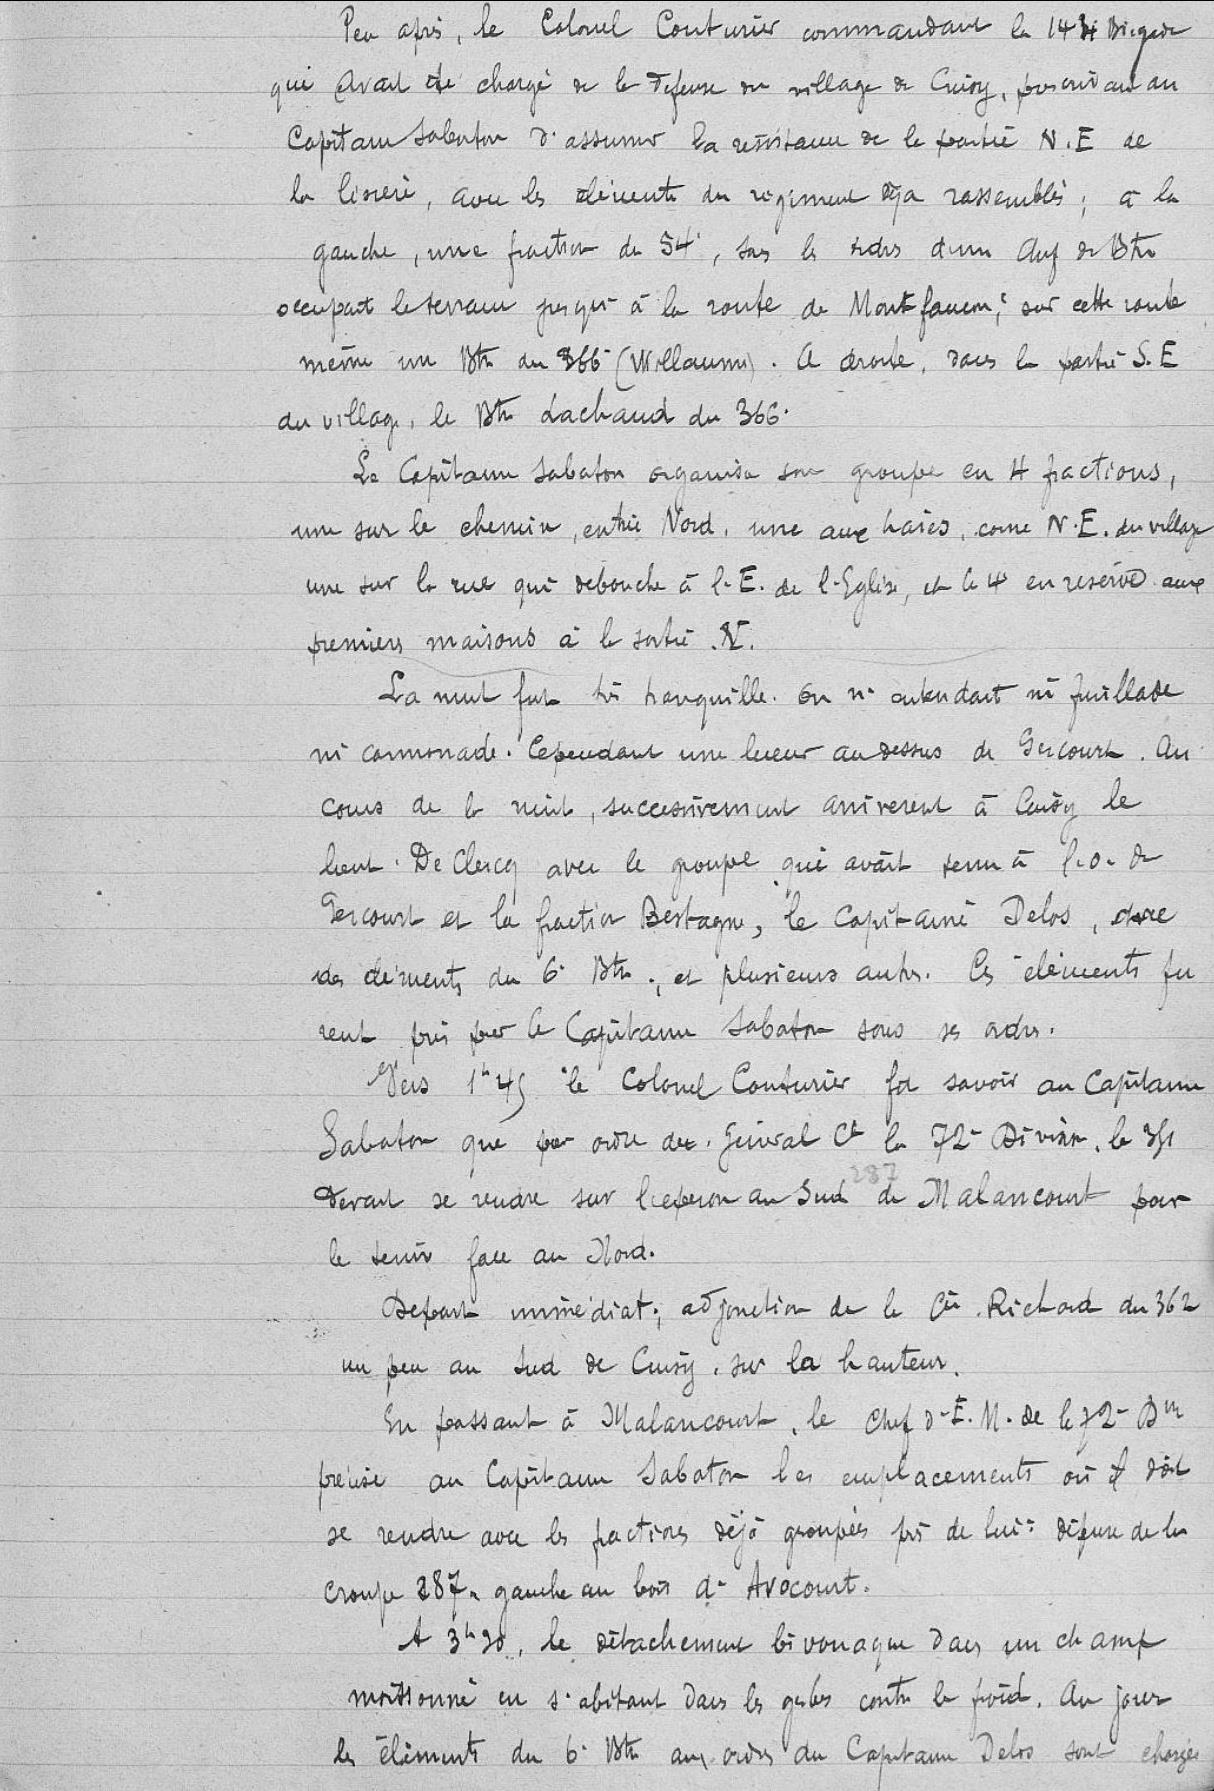 Peu après, le Colonel Couturier commandant la 144 Brigade
qui avait été chargé de la défense du village de Cuisy, prescrivait au
Capitaine Sabaton d'assumer la résistance de la partie N.E de
la lisière, avec les éléments du régiment déjà rassemblés ; à la
gauche, une fraction du 54e, sous les ordres d'un Chef de Btn
occupait le terrain jusqu'à la route de Montfaucon ; sur cette route
même un Btn du 366e (Willaume). A droite, dans la partie S.E
du village, le Btn Lachaud du 366.
Le Capitaine Sabaton organisa son groupe en 4 fractions,
une sur le chemin, entrée Nord, une aux haies, corne N.E. du village
une sur la rue qui débouche à l'E. de l'Eglise, et la 4e en réserve aux
premières maisons à la sortie N.
La nuit fut très tranquille. On n'entendait ni fusillade
ni cannonade. Cependant une lueur au dessus de Gercourt. Au
cours de la nuit, successivement arrivèrent à Cuisy le
lieut. De Clercq avec le groupe qui avait tenu à l'O. de
Gercourt et la fraction Bertagne, le Capitaine Delos, avec
des éléments du 6e Btn, et plusieurs autres. Ces éléments fu
rent pris par le Capitaine Sabaton sous ses ordres.
Vers 1h45 le Colonel Couturier fit savoir au Capitaine
Sabaton que par ordre du Général Ct la 72e Division, le 351
devait se rendre sur l'éperon au Sud 287 de Malancourt pour
le tenir face au Nord.
Départ immédiat ; adjonction de la Cie Richard du 362
un peu au Sud de Cuisy, sur la hauteur.
En passant à Malancourt, le Chef d'E.M. de la 72e Don
précise au Capitaine Sabaton les emplacements où il doit
se rendre avec les fractions déjà groupées près de lui : défense de la
croupe 287, gauche au bois d'Avocourt.
A 3h30, le détachement bivouaque dans un champ
moissonné en s'abritant dans les gerbes contre le froid. Au jour
les éléments du 6e Btn aux ordres du Capitaine Delos sont chargés